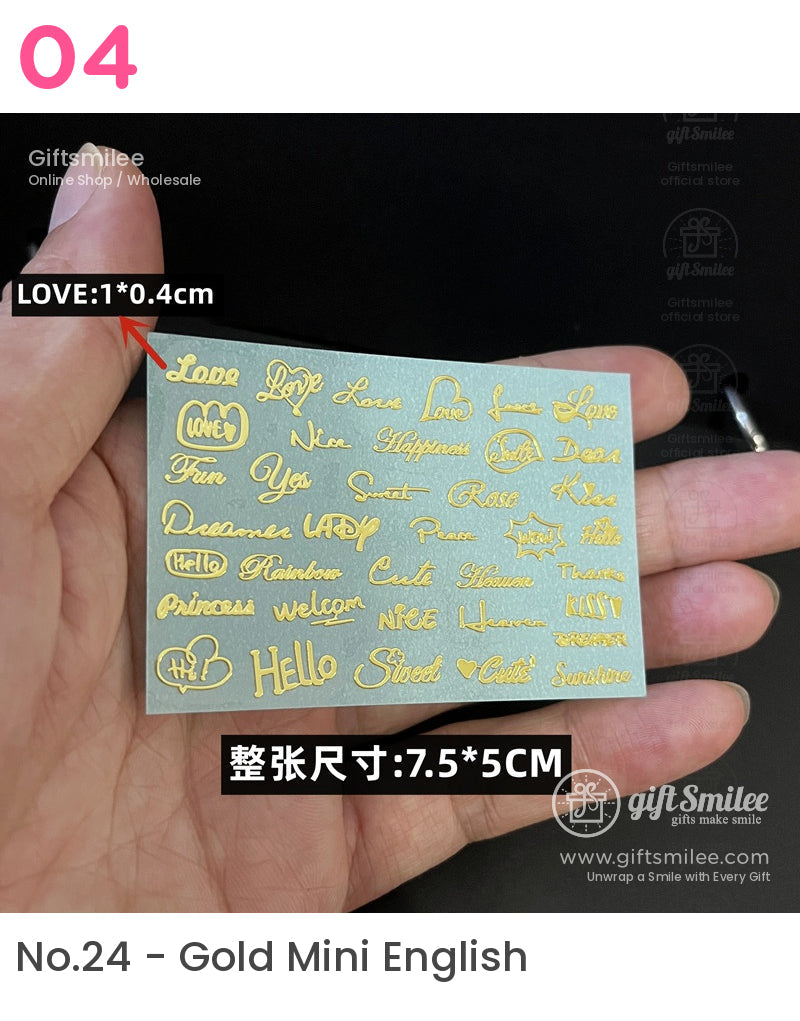 04
Giftsmilee
Online Shop / Wholesale
giftSmilee
Giftsmilee
official store
giftSmilee
Giftsmilee
official store
LOVE:1*0.4cm
Love Love Love Love Love Love
LOVE Nice Happiness Smile Dear
Fun Yes Sweet Rose Kiss
Dreamer LADY Peace WOW! Hello
Hello Rainbow Cute Heaven Thanks
Princess welcom NICE Heaven KISS
DREAMER
Hi! Hello Sweet Cute Sunshine
整张尺寸:7.5*5CM
giftSmilee
gifts make smile
www.giftsmilee.com
Unwrap a Smile with Every Gift
No.24 - Gold Mini English